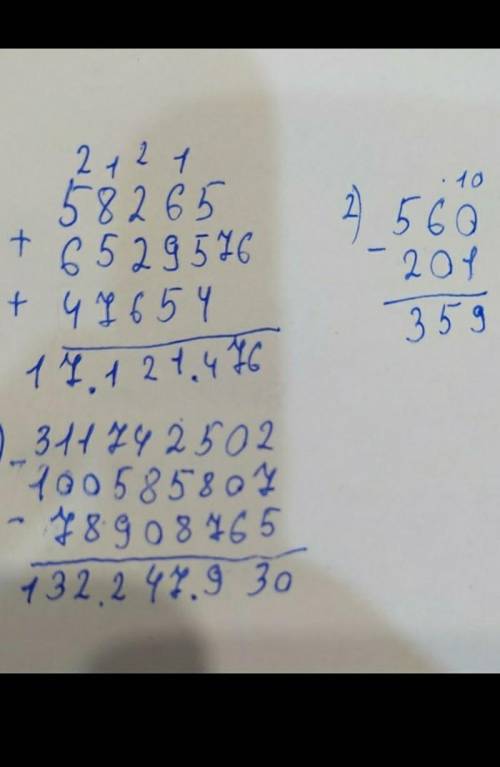 2 1 2 1
58265
+ 6529576
+ 47654
17.121.476
) - 311742502
100585807
- 78908765
132.247.930
2) .10
560
- 201
359